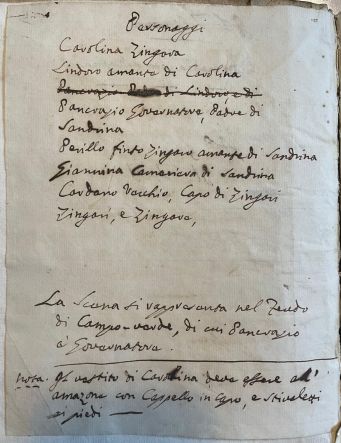 Personaggi
Carolina Zingara
Lindoro amante di Carolina
Pancrazio Padre di Lindoro, e di
Pancrazio Governatore, Padre di
Sandrina
Perillo finto Zingaro amante di Sandrina
Giannina Cameriera di Sandrina
Cardano Vecchio, Capo di Zingari
Zingari, e Zingare,
La Scena si rappresenta nel Feudo
di Campo-verde, di cui Pancrazio
è Governatore.
nota. Il vestito di Carolina deve essere all'
amazone con Cappello in , e Stivaletti
ai piedi